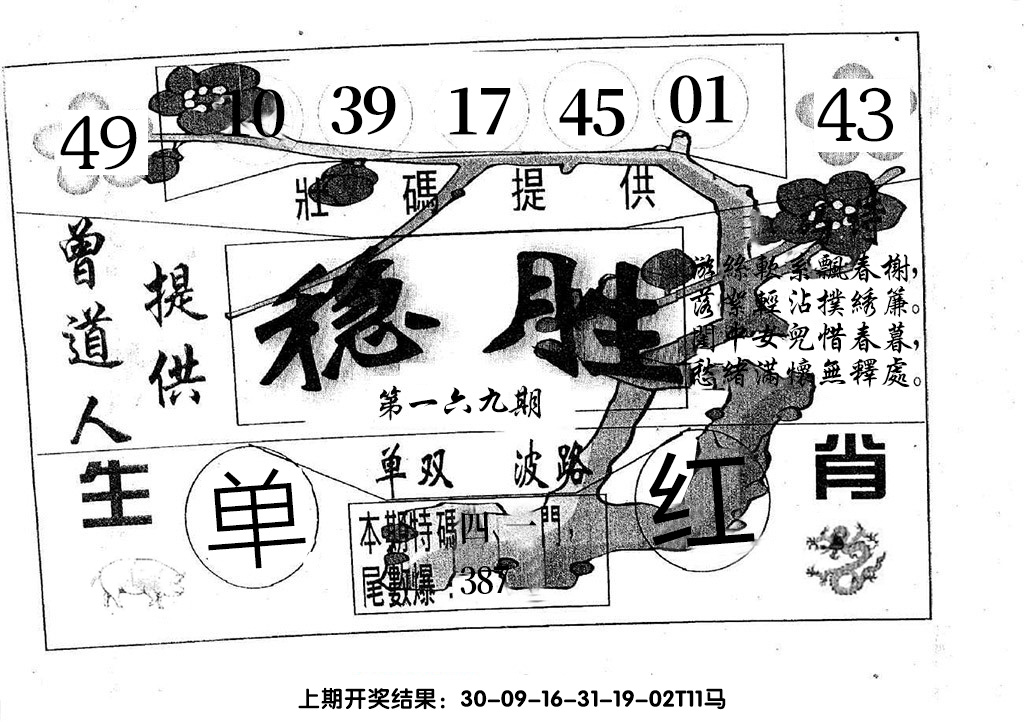 49 10 39 17 45 01 43
壯碼提供
曾道人
提供
稳胜
第一六九期
游絲軟系飄春榭，
落絮輕沾撲綉簾。
閨中女兒惜春暮，
愁緒滿懷無釋處。
单双 波路
生
单
红
肖
本期特碼四、一門，
尾數爆：387
上期开奖结果：30-09-16-31-19-02T11马